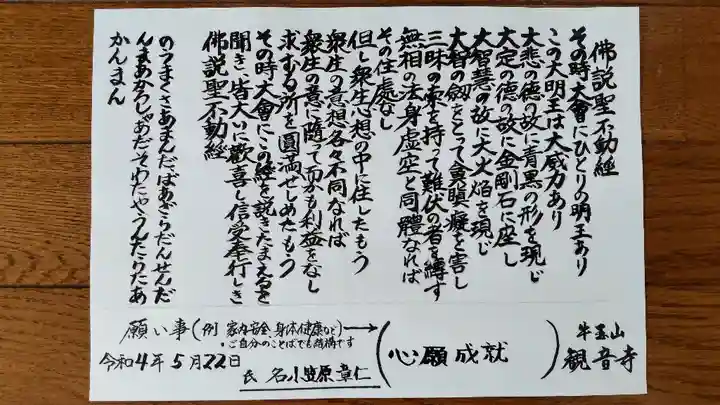 佛説聖不動經
その時大會にひとりの明王あり
この大明王は大威力あり
大悲の徳の故に青黒の形を現じ
大定の徳の故に金剛石に座し
大智慧の故に大火焔を現じ
大智の劔をとって貪瞋癡を害し
三昧の索を持って難伏の者を縛す
無相の法身虚空と同體なれば
その住處なし
但し衆生心想の中に住したもう
衆生の意想各々不同なれば
衆生の意に随って而かも利益をなし
求むる所を圓満せしめたもう
その時大會にこの經を説きたまえるを
聞き皆大いに歡喜し信受奉行しき
佛説聖不動經
のうまくさあまんだばあざらだんせんだ
んまあかろしゃあだそわたやうんたらたあ
かんまん
願い事(例 家内安全、身体健康など)→(心願成就)
・ご自分のことばでも結構です
令和4年5月22日
氏名 小笠原章仁
牛玉山
観音寺